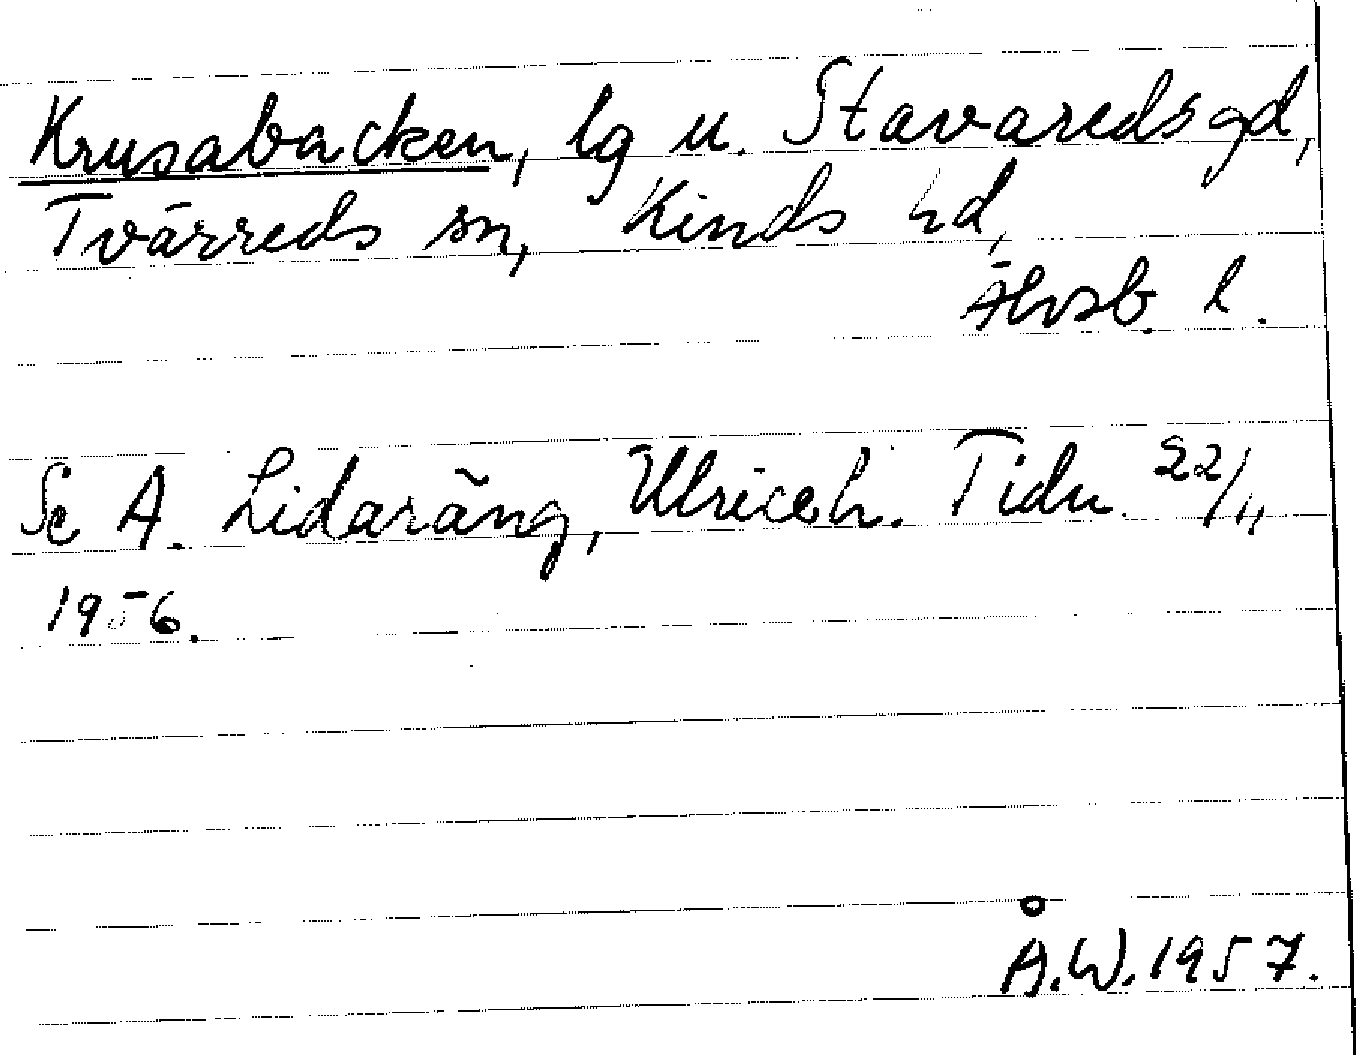 Krusabacken, lg u. Stavaredsgd,
Tvärreds sn, Kinds hd,
Älvsb. l.
Se A. Lidaräng, Ulriceh. Tidn. 22/11
1956.
Å.W. 1957.